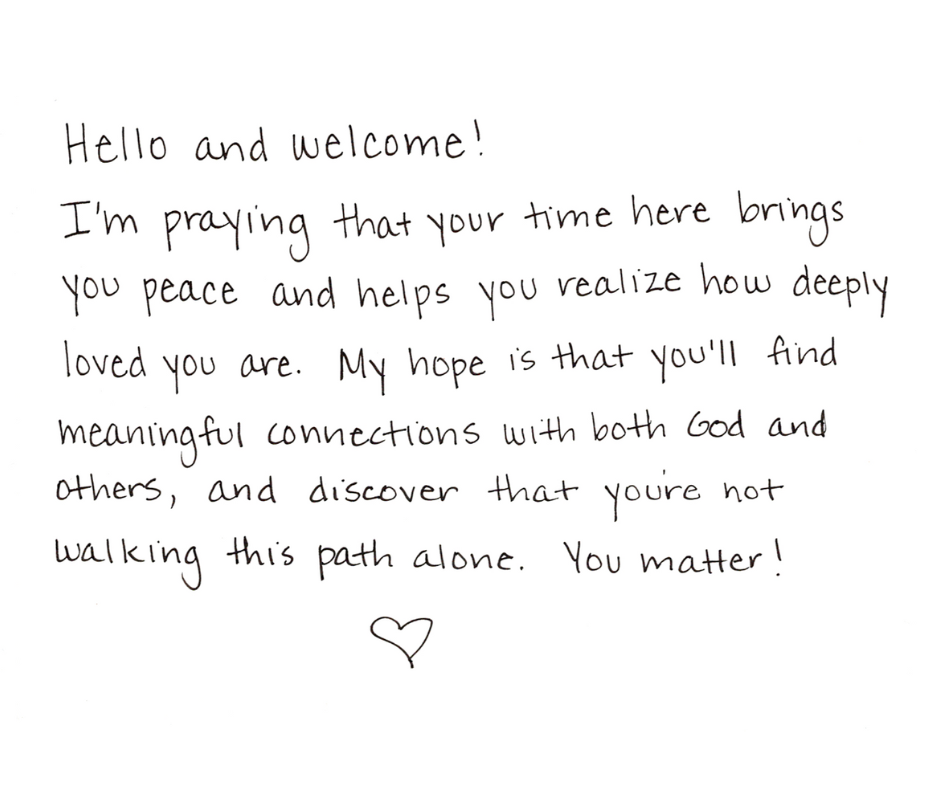 Hello and welcome!
I'm praying that your time here brings
you peace and helps you realize how deeply
loved you are. My hope is that you'll find
meaningful connections with both God and
others, and discover that you're not
walking this path alone. You matter!